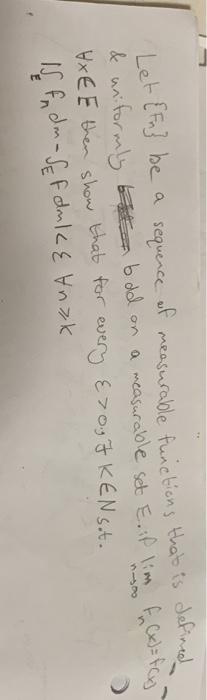 Let {Fn} be a sequence of measurable functions that is defined
& uniformly bdd on a measurable set E. if lim n→∞ fn(x)=f(x)
∀x∈E then show that for every ε>0, ∃ K∈N s.t.
|∫E fn dm - ∫E f dm| < ε ∀n≥K